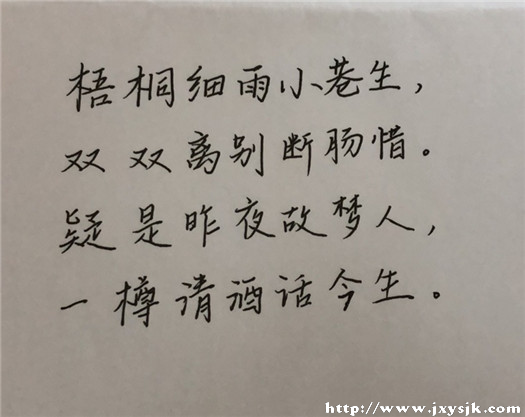 梧桐细雨小巷生，
双双离别断肠惜。
疑是昨夜故梦人，
一樽请酒话今生。
http://www.jxysjk.com